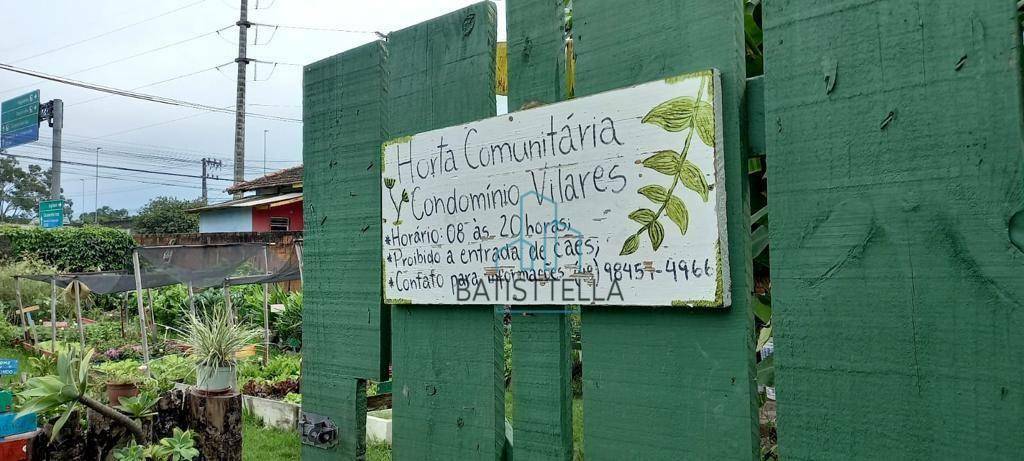 Horta Comunitária
Condomínio Vilares
*Horário: 08 às 20 horas;
*Proibido a entrada de cães;
*Contato para informações (48) 98457-4966
BATISTTELLA